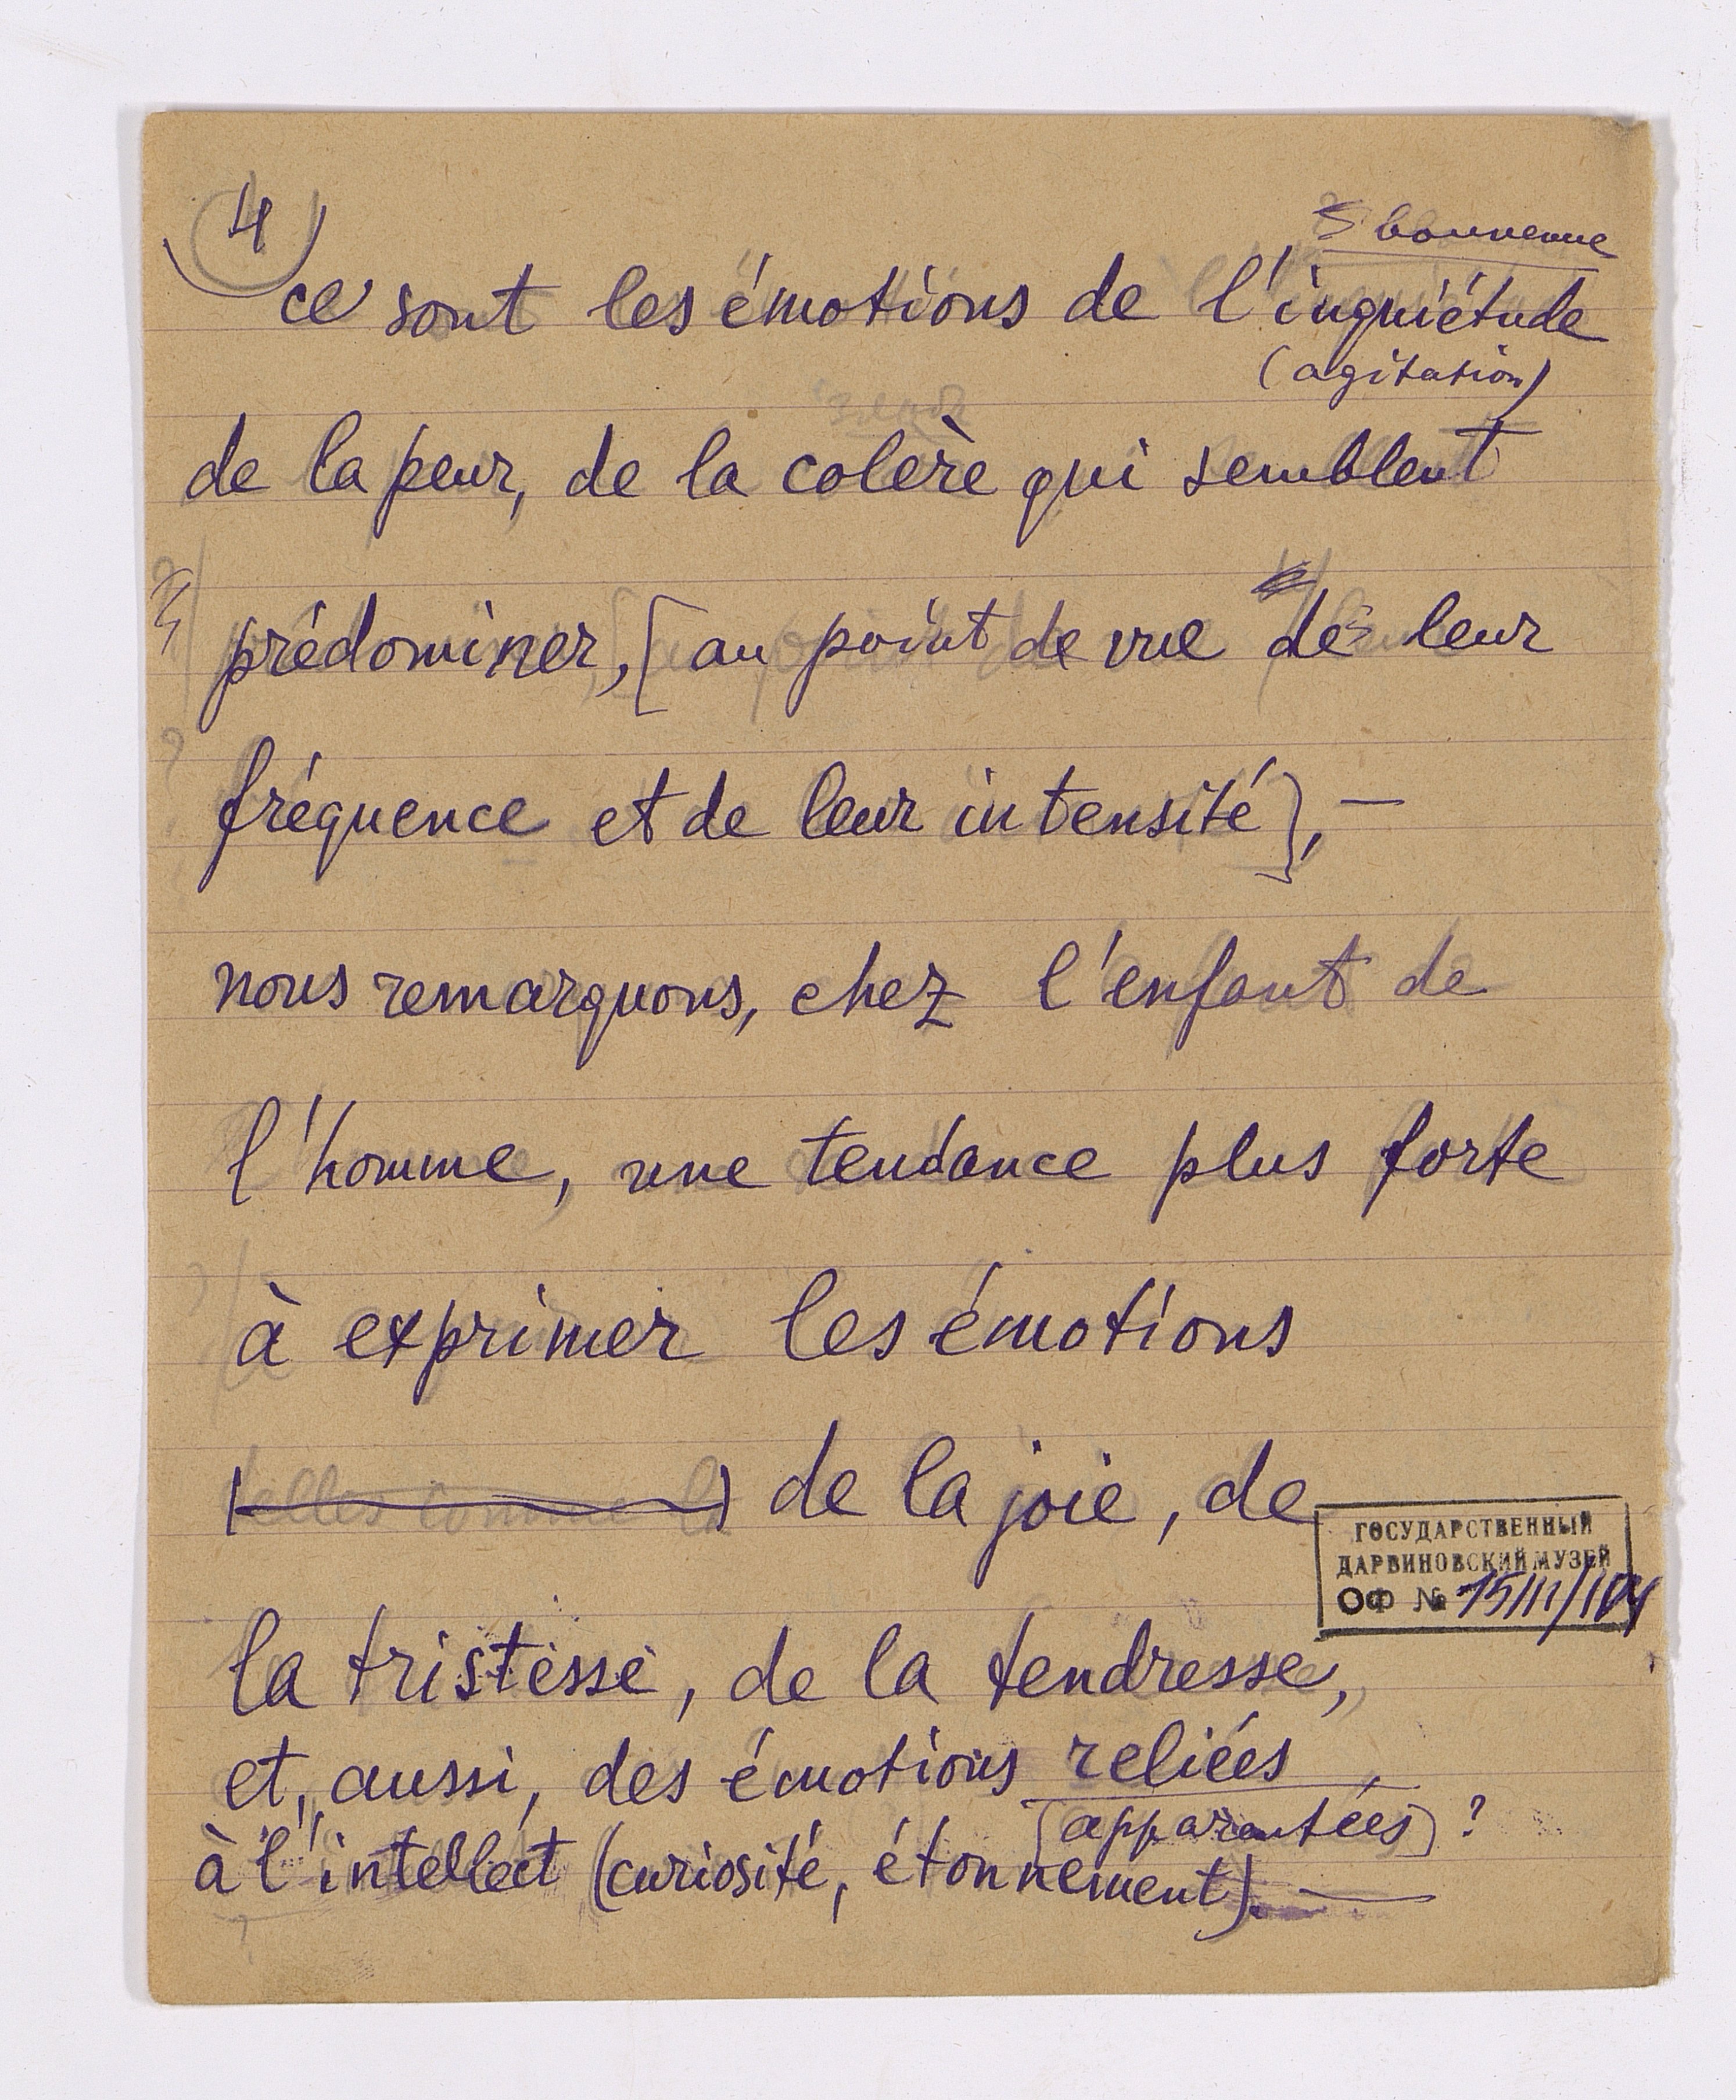 4)
ce sont les émotions de l'inquiétude
(agitation)
de la peur, de la colère qui semblent
prédominer, [au point de vue de leur
fréquence et de leur intensité], —
nous remarquons, chez l'enfant de
l'homme, une tendance plus forte
à exprimer les émotions
telles comme la de la joie, de
ГОСУДАРСТВЕННЫЙ
ДАРВИНОВСКИЙ МУЗЕЙ
ОФ №
la tristesse, de la tendresse,
et, aussi, des émotions reliées
(apparentées) ?
à l'intellect (curiosité, étonnement). —